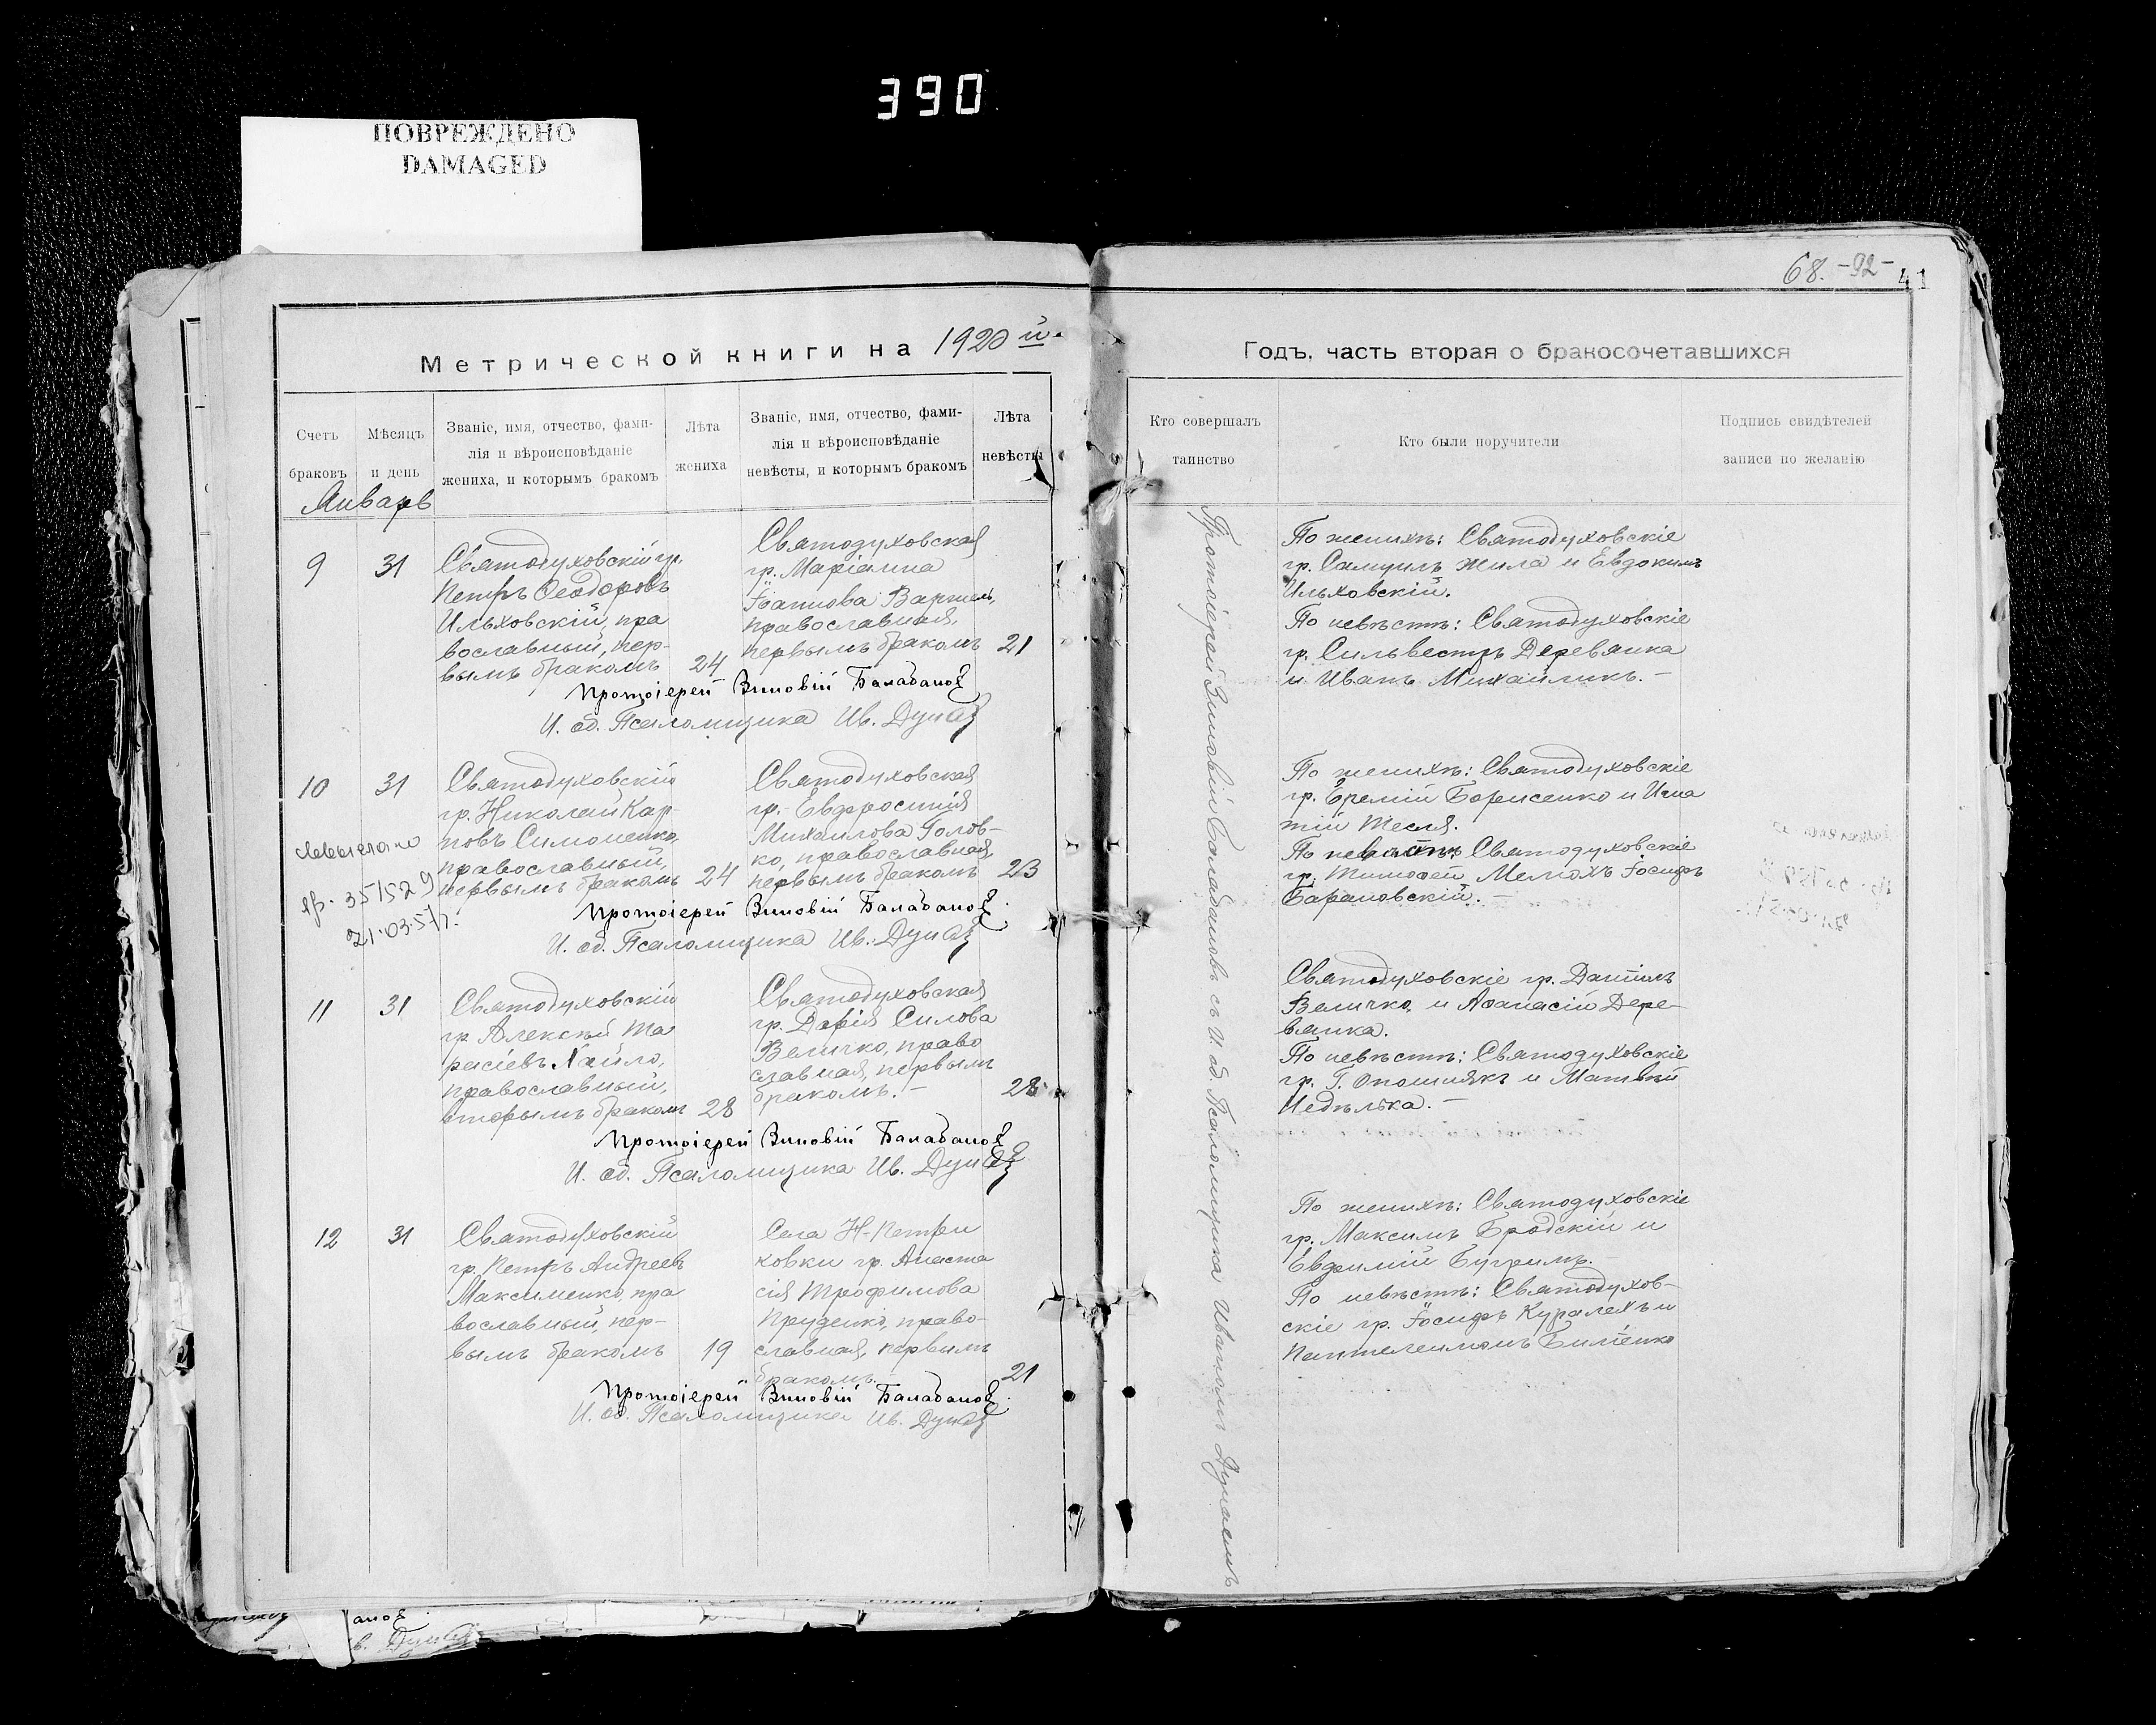 390
ПОВРЕЖДЕНО
DAMAGED
68. -92- 41
Метрической книги на 1920 й.
Счетъ
браковъ
Мѣсяцъ
и день
Званіе, имя, отчество, фами-
лія и вѣроисповѣданіе
жениха, и которымъ бракомъ
Лѣта
жениха
Званіе, имя, отчество, фами-
лія и вѣроисповѣданіе
невѣсты, и которымъ бракомъ
Лѣта
невѣсты
Январь
9 31
Святодуховскій гр.
Петръ Ѳеодоровъ
Ильховскій, пра
вославный, пер-
вымъ бракомъ 24
Святодуховская
гр. Маріанна
Іоаннова
православная,
первымъ бракомъ 21
Протоіерей Зиновій Балабановъ
И. об. Псаломщика Ив. Дунаъ
10 31
Святодуховскій
гр. Николай Кар-
повъ Симоненко,
православный,
первымъ бракомъ 24
Святодуховская
гр. Евфросинія
Михаилова Голов-
ко, православная,
первымъ бракомъ 23
21.03.57г.
Протоіерей Зиновій Балабановъ
И. об. Псаломщика Ив. Дунаъ
11 31
Святодуховскій
гр. Алексѣй Та
расіевъ Хайло,
православный,
вторымъ бракомъ 28
Святодуховская
гр. Дарія Силова
Величко, право
славная, первымъ
бракомъ. - 28
Протоіерей Зиновій Балабановъ
И. об. Псаломщика Ив. Дунаъ
12 31
Святодуховскій
гр. Петръ Андреевъ
Максименко, пра
вославный, пер-
вымъ бракомъ 19
Села Н-Петри
ковки гр. Анаста
сія Трофимова
Пруденко, право-
славная, первымъ
бракомъ. 21
Протоіерей Зиновій Балабановъ
И. об. Псаломщика Ив. Дунаъ
Годъ, часть вторая о бракосочетавшихся
Кто совершалъ
таинство
Кто были поручители
Подпись свидѣтелей
записи по желанію
Протоіерей Зиновій Балабановъ съ И. об. Псаломщика Иваномъ Дунаемъ
По женихѣ: Святодуховскіе
гр. Самуилъ Жила и Евдокимъ
Ильховскій.
По невѣстѣ: Святодуховскіе
гр. Сильвестръ Деревянка
и Иванъ Михайликъ. -
По женихѣ: Святодуховскіе
гр. Еремій Борисенко и Игна
тій Тесля.
По невѣстѣ: Святодуховскіе
гр. Тимоѳей Мелюхъ Іосифъ
Барановскій. -
Святодуховскіе гр. Даніилъ
Величко и Аѳанасій Дере-
вянка.
По невѣстѣ: Святодуховскіе
гр. Г. Опошнякъ и Матвѣй
Недѣлька. -
По женихѣ: Святодуховскіе
гр. Максимъ Бродскій и
Евфимій Бугримъ.
По невѣстѣ: Святодухов-
скіе гр. Іосифъ Куралехъ и
Пантелеимонъ Билѣнко